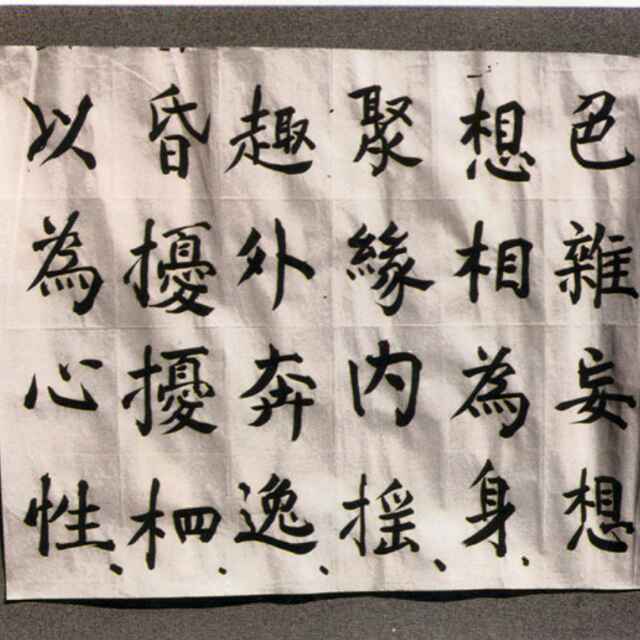 色雜妄想
想相為身、
聚緣内搖、
趣外奔逸、
昏擾擾相、
以為心性、